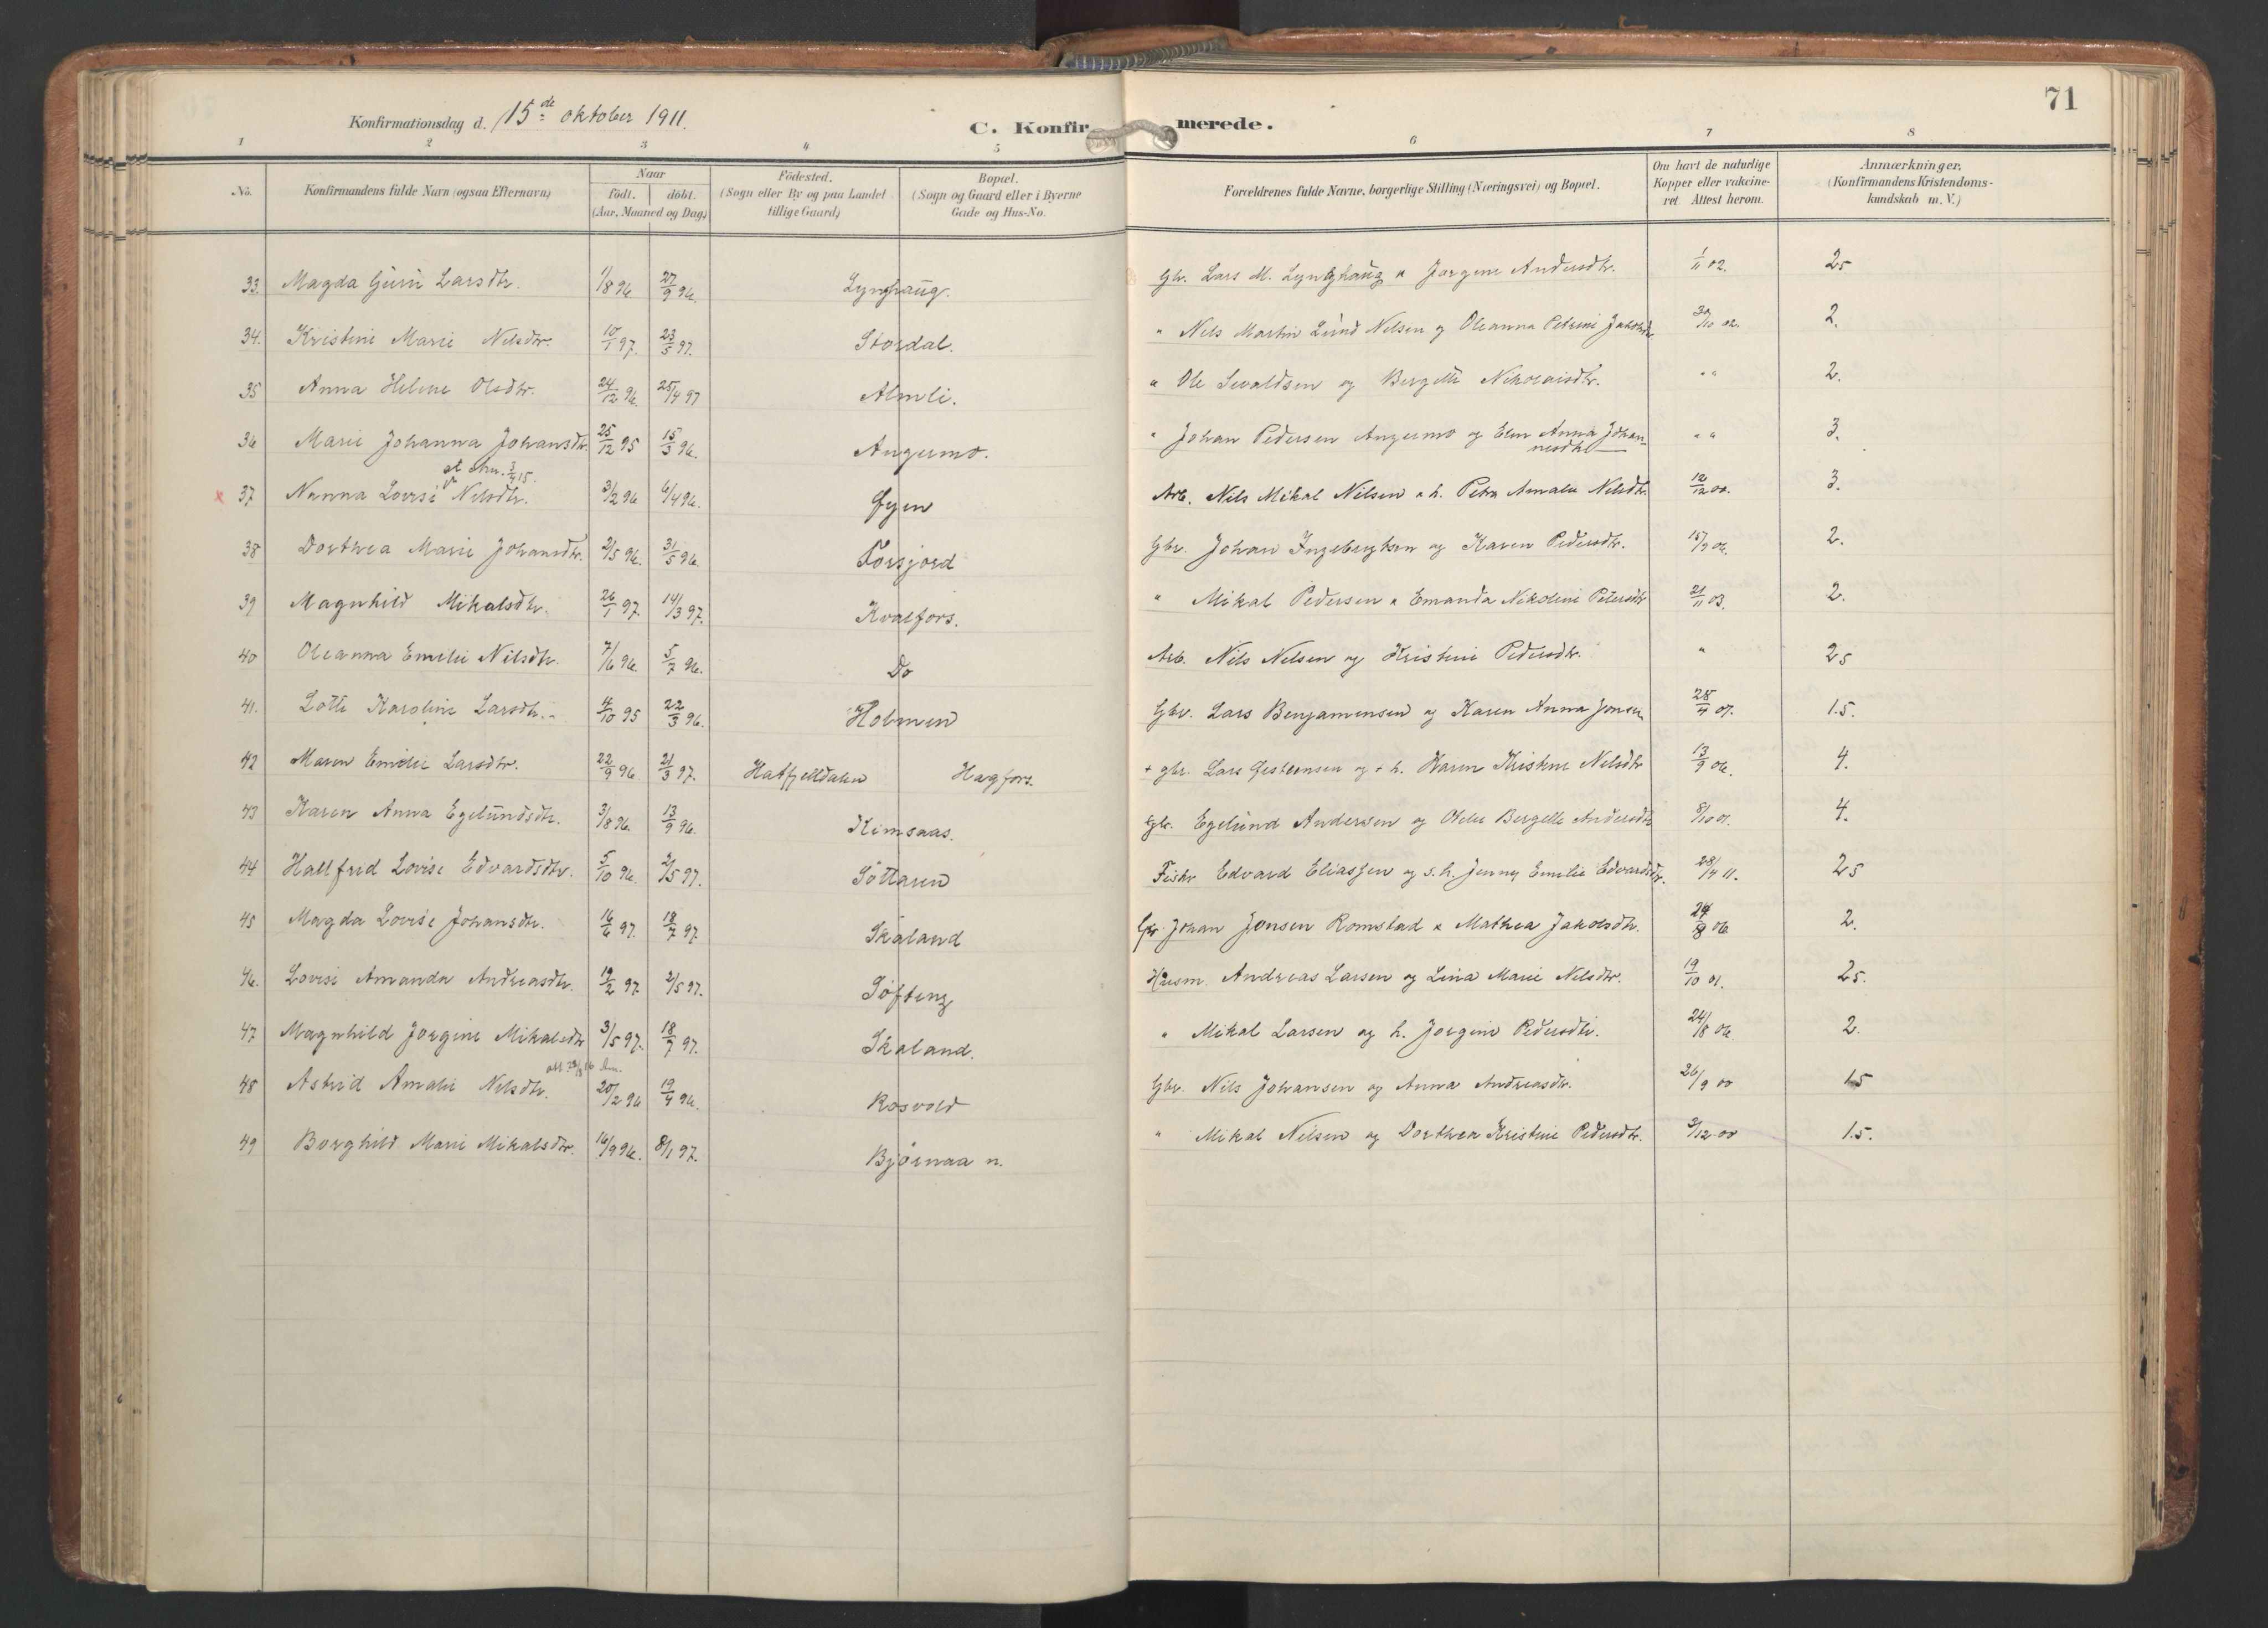 71
Konfirmationsdag d. 15de oktober 1911.
C. Konfirmerede.
1 2 3 4 5 6 7 8
No. Konfirmandens fulde Navn (ogsaa Efternavn) Naar födt. döbt. (Aar, Maaned og Dag.) Födested. (Sogn eller By og paa Landet tillige Gaard) Bopæl. (Sogn og Gaard eller i Byerne Gade og Hus-No. Forældrenes fulde Navne, borgerlige Stilling (Næringsvei) og Bopæl. Om havt de naturlige Kopper eller vakcineret. Attest herom. Anmærkninger. (Konfirmandens Kristendomskundskab m. V.)
33. Magda Guri Larsdtr. 1/8 96. 27/9 96. Lynghaug. Gbr. Lars M. Lynghaug & Jorgine Andersdtr. 1/11 02. 25
34. Kristine Marie Nilsdtr. 10/1 97. 23/5 97. Stordal. " Nils Martin Lund Nilsen og Oleanna Petrine Jakobsdtr. 30/10 02. 2.
35 Anna Helene Olsdtr. 24/12 96. 25/4 97 Almli. " Ole Sivaldsen og Bergitte Nikolaisdtr. " " 2.
36 Marie Johanna Johansdtr. 25/12 95 15/3 96. Angermo. " Johan Pedersen Angermo og Elen Anna Johannesdtr " " 3.
37 Nanna Lovise Nilsdtr. 3/2 96 6/4 96. Øyen Arb. Nils Mikal Nilsen & h. Petra Amalie Nilsdtr. 12/12 00. 3.
38 Dorthea Marie Johansdtr. 2/5 96. 31/5 96. Forsjord Gbr. Johan Ingebrigtsen og Karen Pedersdtr. 15/9 06. 2.
39 Magnhild Mikalsdtr. 26/1 97. 14/3 97. Kvalfors. " Mikal Pedersen & Emanda Nikoline Petersdtr 21/11 03. 2.
40 Oleanna Emilie Nilsdtr. 7/6 96. 5/7 96. Do Arb. Nils Nilsen og Kristine Pedersdtr. " 25
41. Lotte Karoline Larsdtr. 4/10 95 22/3 96. Holmen Gbr. Lars Benjaminsen og Karen Anna Jonsen 25/4 07. 1.5.
42 Maren Emilie Larsdtr. 22/9 96 21/3 97. Hatfjelldalen Hagfors. + gbr. Lars Gistensen og + h. Karen Kristine Nilsdtr 13/9 06. 4.
43 Karen Anna Egelundsdtr. 3/8 96. 13/9 96. Kimsaas. Gbr. Egelund Andersen og Olise Bergitte Andersdtr 8/10 01. 4.
44 Hallfrid Lovise Edvardsdtr. 5/10 96. 2/5 97. Søttaren Fisker Edvard Eliassen og s.h. Jenny Emilie Edvardsdtr. 28/4 11. 25
45 Magda Lovise Johansdtr. 16/6 97. 18/7 97 Skaland Gbr. Johan Jonsen Romstad & Mathea Jakobsdtr. 24/8 06 2.
46. Lovise Amanda Andreasdtr. 19/2 97 2/5 97. Søfting Husm. Andreas Larsen og Lina Marie Nilsdtr. 19/10 01. 25.
47 Magnhild Jorgine Mikalsdtr 3/5 97. 18/7 97. Skaland. " Mikal Larsen og h. Jorgine Pedersdtr. 24/8 06 2.
48 Astrid Amalie Nilsdtr. 20/2 96 19/4 96. Rosvold Gbr. Nils Johansen og Anna Andreasdtr. 26/9 00 15
49 Borghild Marie Mikalsdtr. 16/9 96. 8/1 97. Bjørnaa n. " Mikal Nilsen og Dorthea Kristine Pedersdtr. 3/12 00 1.5.